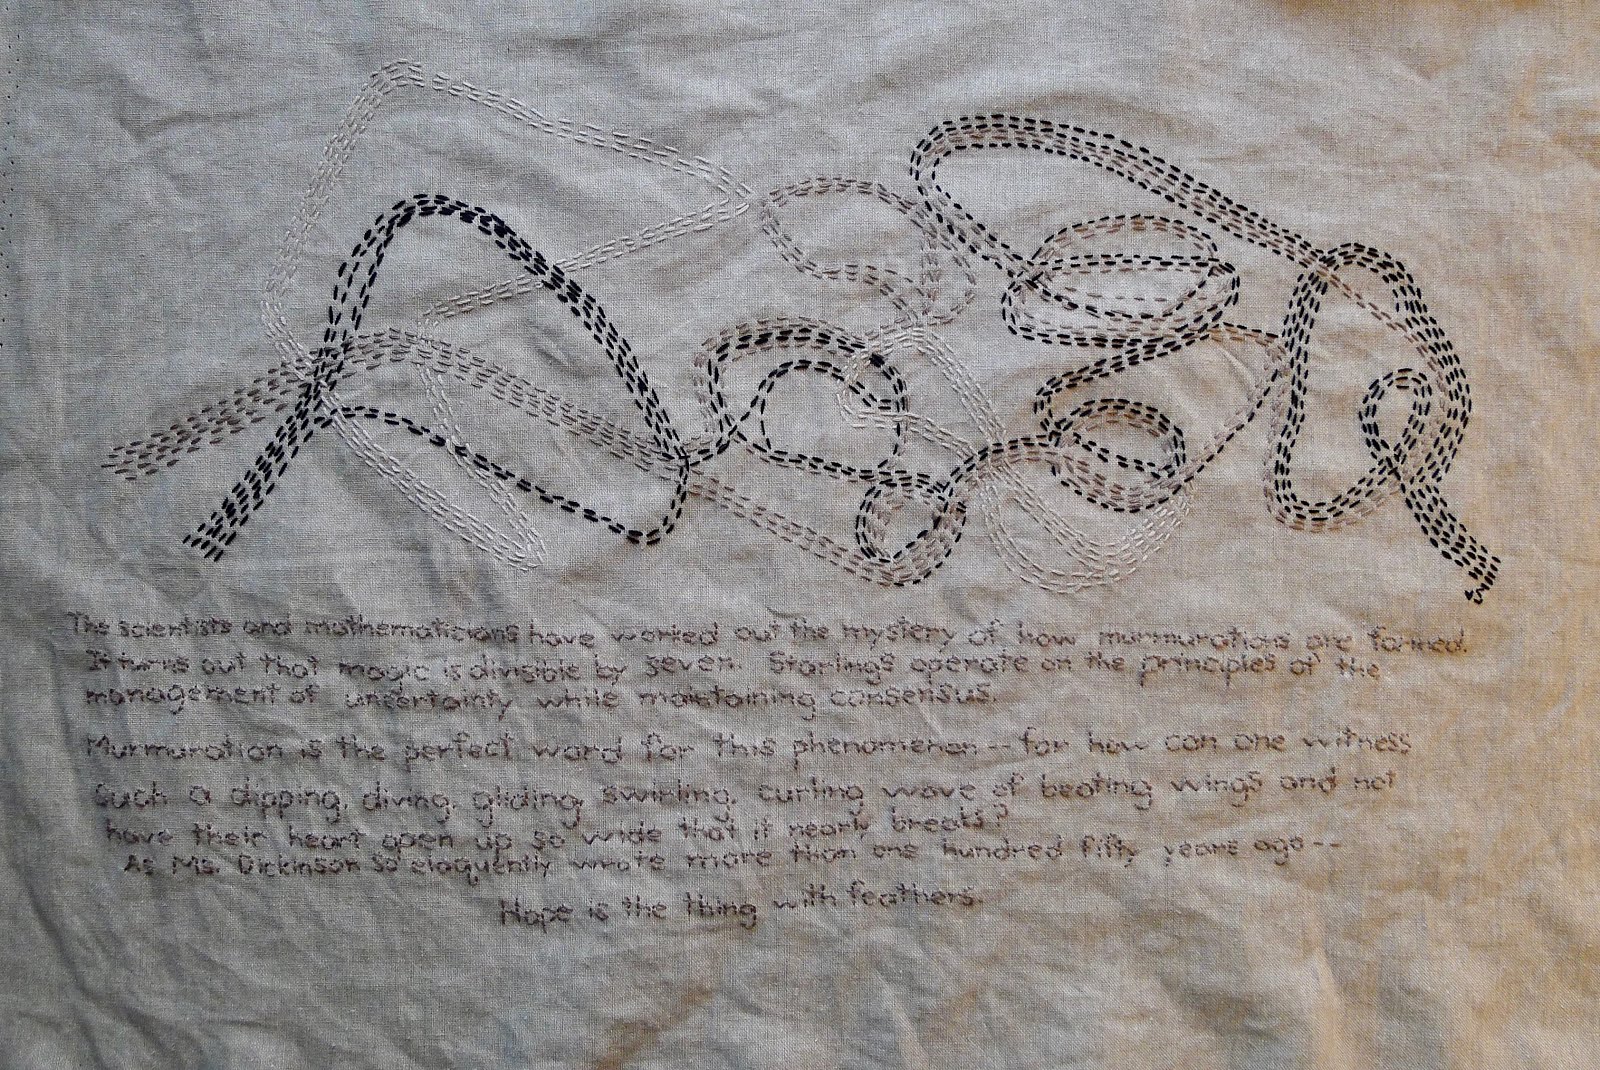 The scientists and mathematicians have worked out the mystery of how murmurations are formed.
It turns out that magic is divisible by seven. Starlings operate on the principles of the
management of uncertainty while maintaining consensus.
Murmuration is the perfect word for this phenomenon -- for how can one witness
such a dipping, diving, gliding, swirling, curling wave of beating wings and not
have their heart open up so wide that it nearly breaks?
As Ms. Dickinson so eloquently wrote more than one hundred fifty years ago --
Hope is the thing with feathers.